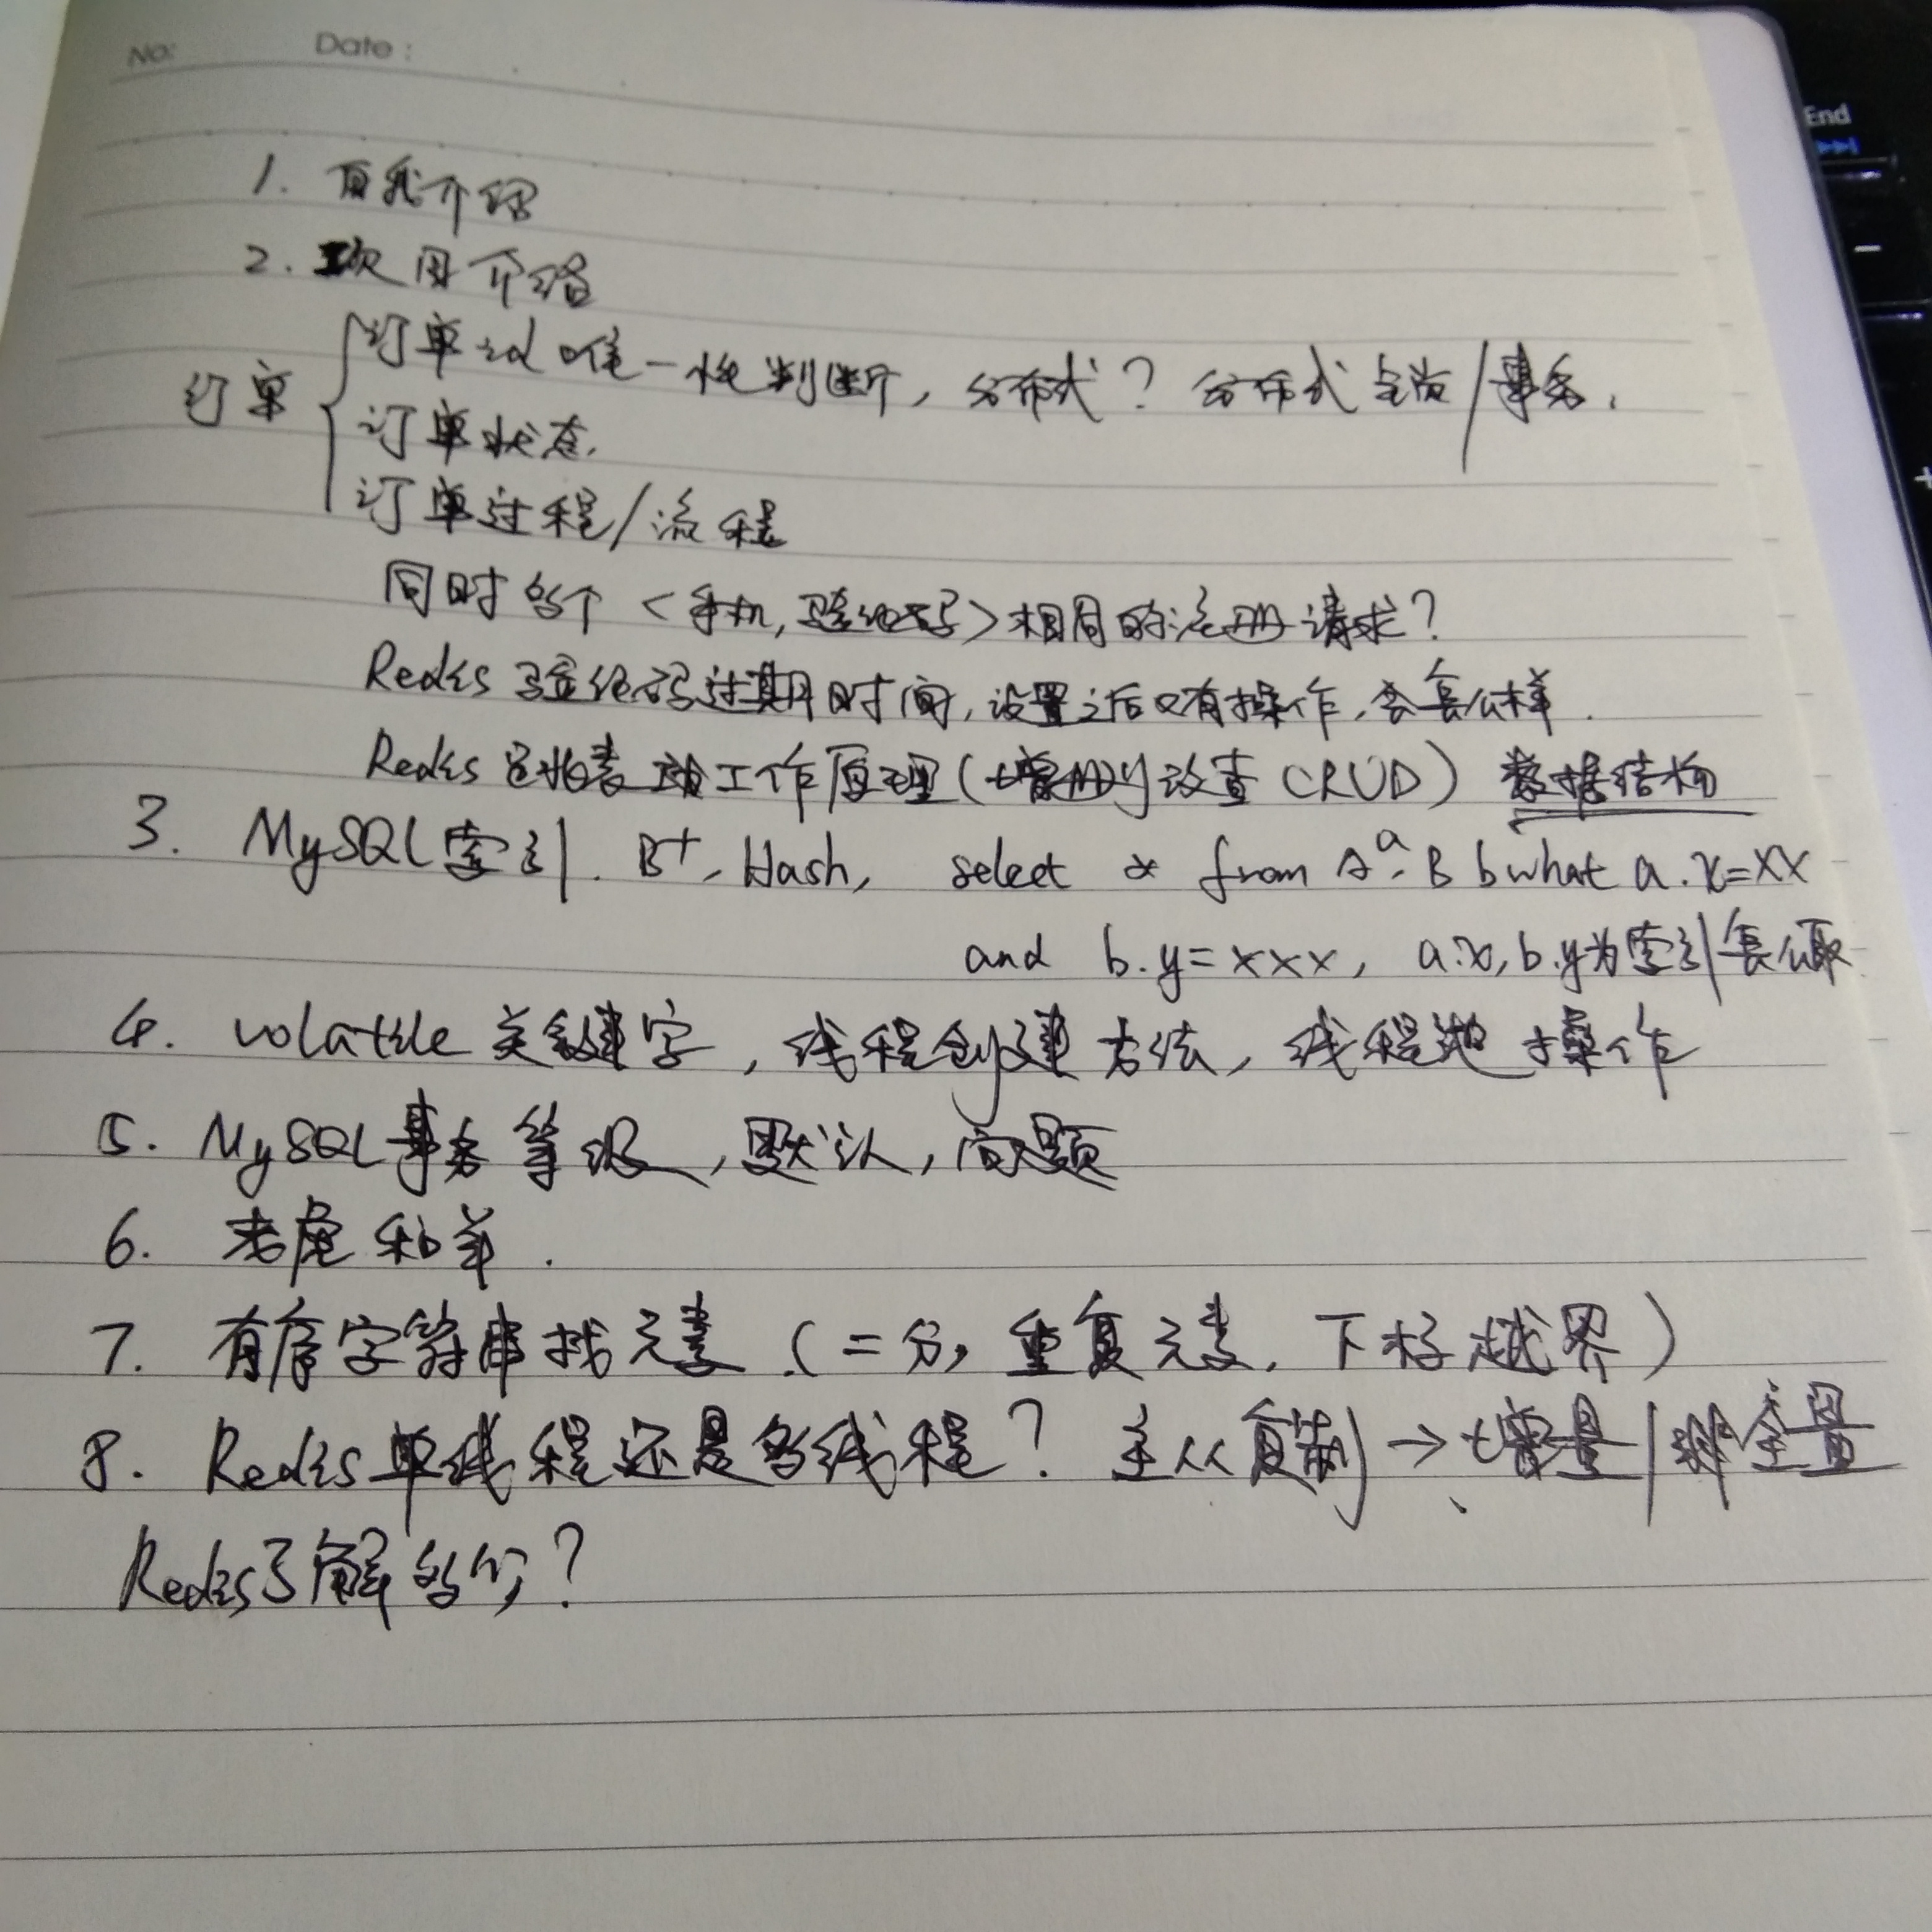 No: Date:
1. 自我介绍
2. 项目介绍
订单
订单id唯一性判断, 分布式? 分布式锁/事务.
订单状态.
订单过程/流程
同时多个<手机,验证码>相同的注册请求?
Redis 验证码过期时间,设置之后又有操作,会怎么样.
Redis 工作原理(增删改查 CRUD) 数据结构
3. MySQL索引. B+, Hash, select * from A a, B b what a.x=xx
and b.y=xxx, a.x,b.y为索引怎么取
4. volatile 关键字, 线程创建方法, 线程池操作
5. MySQL事务等级, 默认, 问题
6. 老虎和羊.
7. 有序字符串找元素 (二分, 重复元素, 下标越界)
8. Redis单线程还是多线程? 主从复制→增量/非全量
Redis了解多少?
End